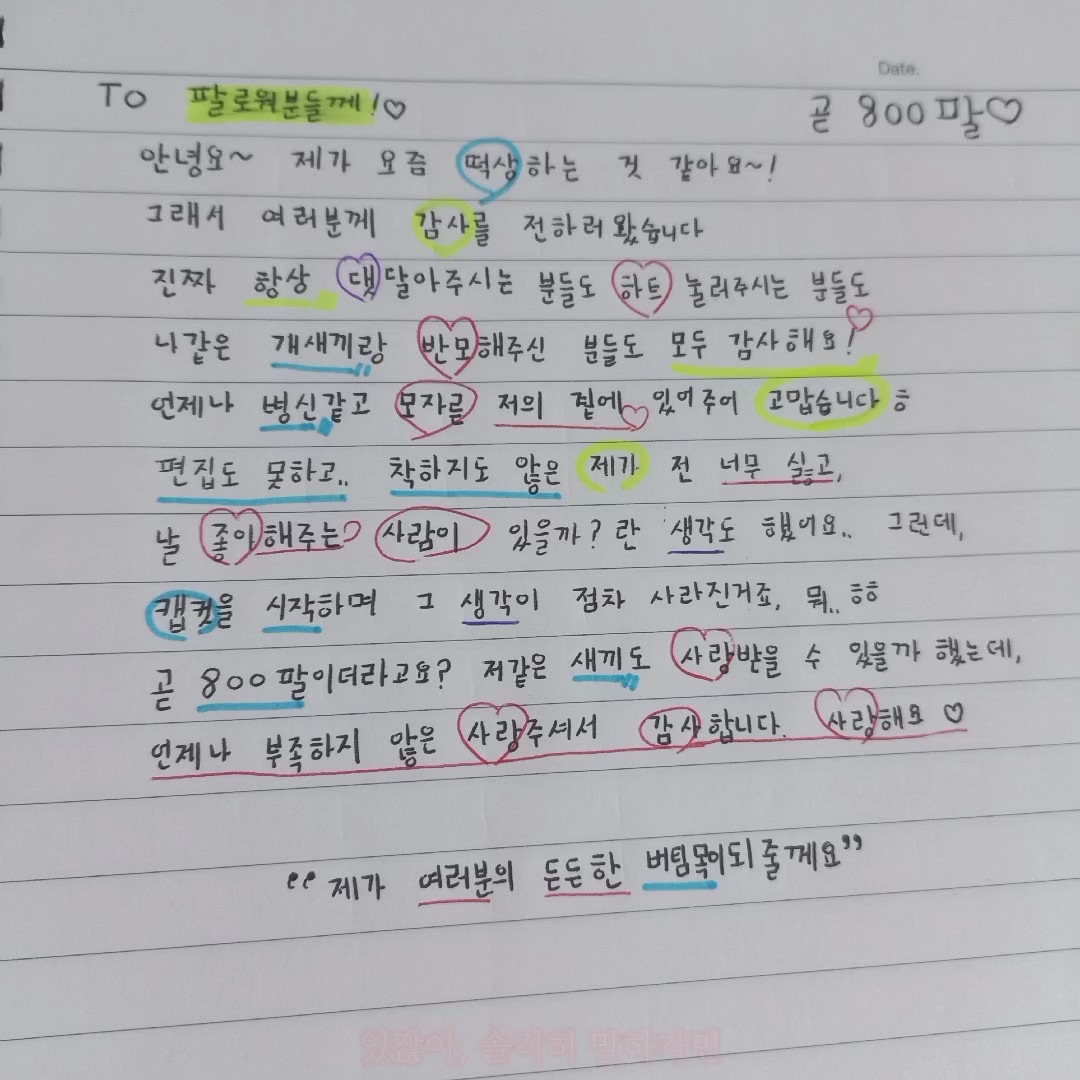 Date.
TO 팔로워분들께!♡
곧 800팔♡
안녕요~ 제가 요즘 떡상하는 것 같아요~!
그래서 여러분께 감사를 전하러 왔습니다
진짜 항상 댓달아주시는 분들도 하트 눌러주시는 분들도
나같은 개새끼랑 반모해주신 분들도 모두 감사해요!♡
언제나 병신같고 모자른 저의 곁에♡ 있어주어 고맙습니다ㅎ
편집도 못하고.. 착하지도 않은 제가 전 너무 싫고,
날 좋아해주는♡ 사람이 있을까? 란 생각도 했어요.. 그런데,
캡컷을 시작하며 그 생각이 점차 사라진거죠, 뭐..ㅎㅎ
곧 800팔이더라고요? 저같은 새끼도 사랑받을 수 있을까 했는데,
언제나 부족하지 않은 사랑주셔서 감사합니다. 사랑해요♡
“제가 여러분의 든든한 버팀목이되줄께요”
있잖아, 솔직히 말하자면